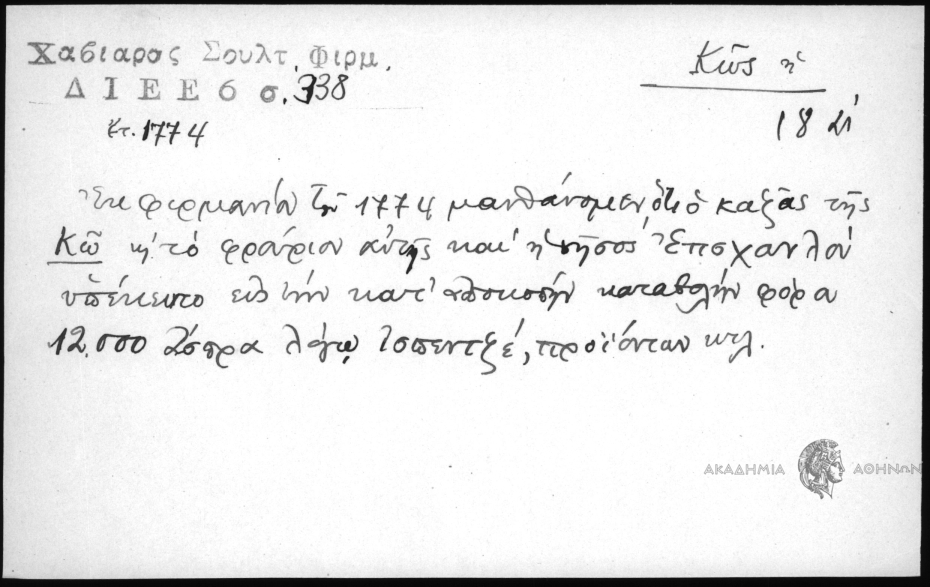 Χαβιαρας Σουλτ. Φιρμ.
Δ Ι Ε Ε 6 σ. 338
ἔτ. 1774
Κῶς ἡ
18
Ἐκ φιρμανίου τοῦ 1774 μανθάνομεν ὅτι ὁ καζᾶς τῆς
Κῶ κ' τό φρούριον αὐτῆς καί ἡ νῆσος
ὑπέκειτο εἰς τήν κατ' ἀποκοπήν καταβολήν φόρου
12.000 ἄσπρα λόγῳ ἰσπεντζέ, προϊόντων κτλ.
ΑΚΑΔΗΜΙΑ ΑΘΗΝΩΝ